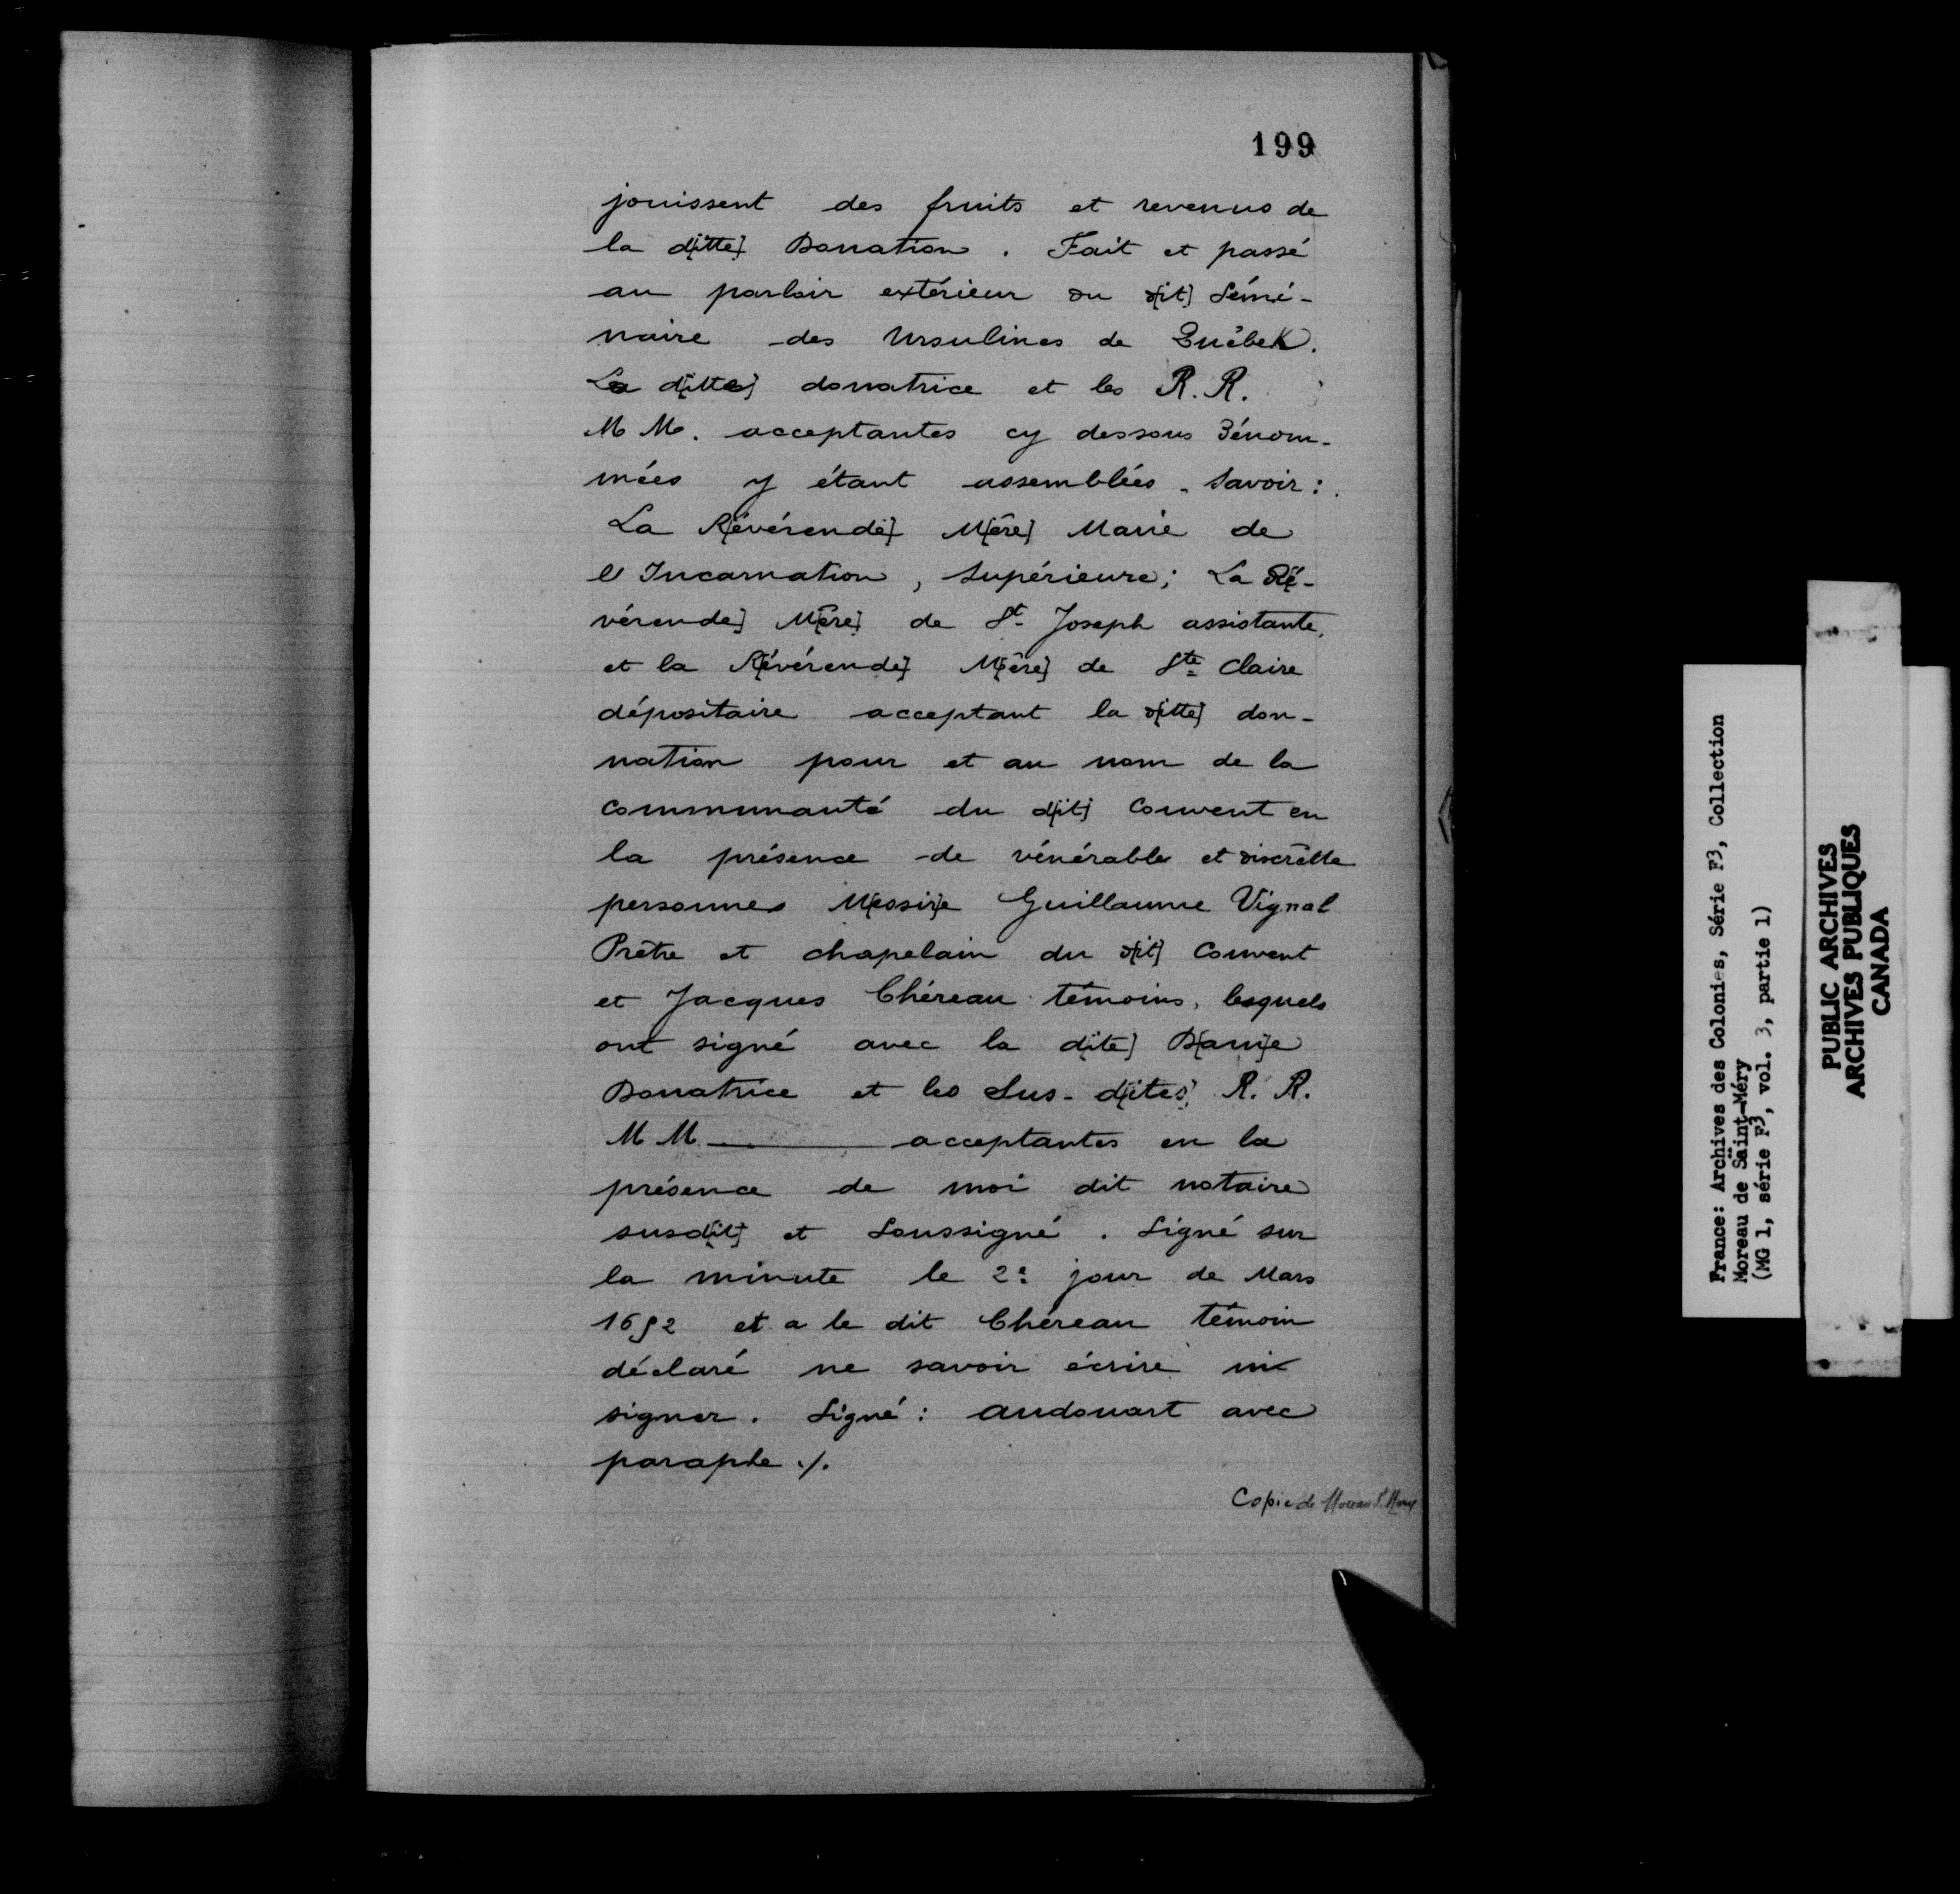 199
jouissent des fruits et revenus de
la d[itte] Donation. Fait et passé
au parloir extérieur du d[it] Sémi-
naire des Ursulines de Québek.
La d[itte] donatrice et les R. R.
M M. acceptantes cy dessous dénom-
mées y étant assemblées. Savoir :
La R[évérende] M[ère] Marie de
l'Incarnation, Supérieure; La R[é-
vérende] M[ère] de St Joseph assistante,
et la R[évérende] M[ère] de Ste Claire
dépositaire acceptant la d[itte] don-
nation pour et au nom de la
communauté du d[it] Couvent en
la présence de vénérable et discrètte
personnes M[essir]e Guillaume Vignal
Prêtre et chapelain du d[it] Couvent
et Jacques Chéreau témoins, lesquels
ont signé avec la d[ite] D[am]e
Donatrice et les Sus-d[ites] R. R.
M M acceptantes en la
présence de moi dit notaire
susd[it] et Soussigné. Signé sur
la minute le 2e jour de Mars
1652 et a le dit Chéreau témoin
déclaré ne savoir écrire ni
signer. Signé : Audouart avec
paraphe ./.
Copie de Moreau St Mery
France: Archives des Colonies, Série F3, Collection
Moreau de Saint-Méry
(MG 1, série F3, vol. 3, partie 1)
PUBLIC ARCHIVES
ARCHIVES PUBLIQUES
CANADA